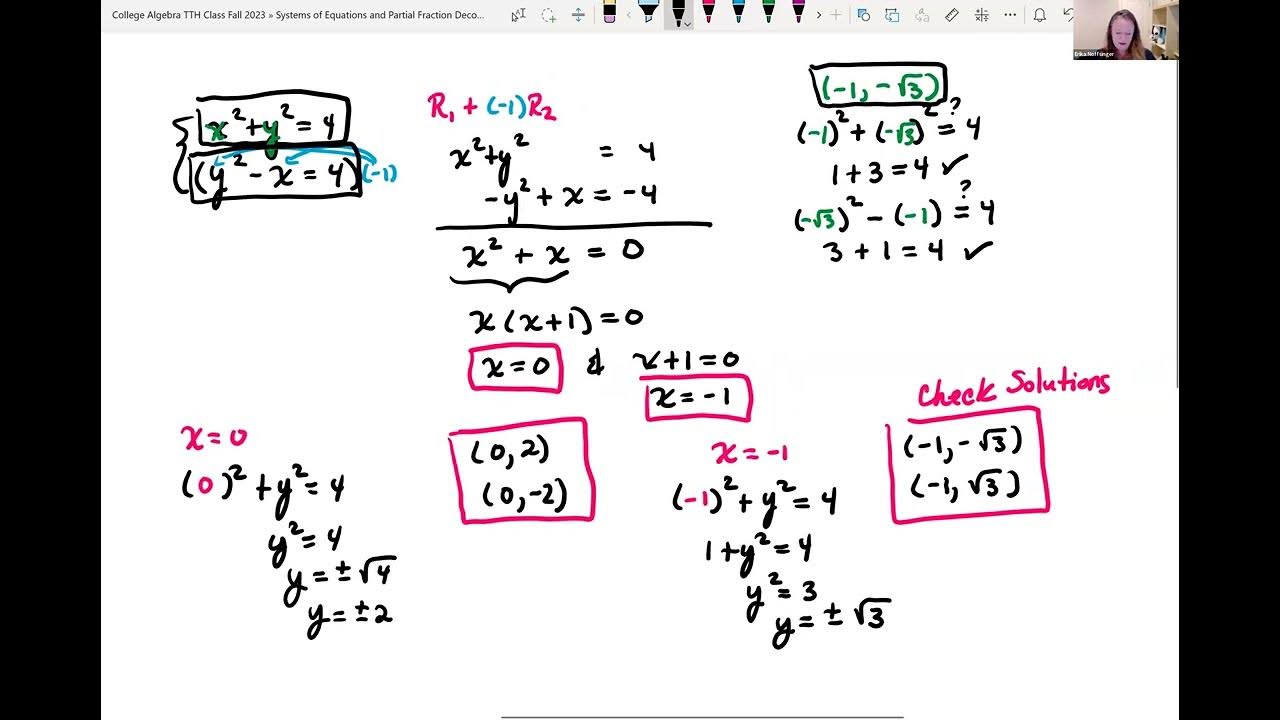 College Algebra TTH Class Fall 2023 » Systems of Equations and Partial Fraction Deco...
Erika Noffsinger
x² + y² = 4
(y² - x = 4) (-1)
R₁ + (-1)R₂
x² + y² = 4
-y² + x = -4
x² + x = 0
x(x+1) = 0
x = 0 & x+1 = 0
x = -1
(-1, -√3)
(-1)² + (-√3)² ?= 4
1 + 3 = 4 ✓
(-√3)² - (-1) ?= 4
3 + 1 = 4 ✓
x = 0
(0)² + y² = 4
y² = 4
y = ±√4
y = ±2
(0, 2)
(0, -2)
x = -1
(-1)² + y² = 4
1 + y² = 4
y² = 3
y = ±√3
Check Solutions
(-1, -√3)
(-1, √3)